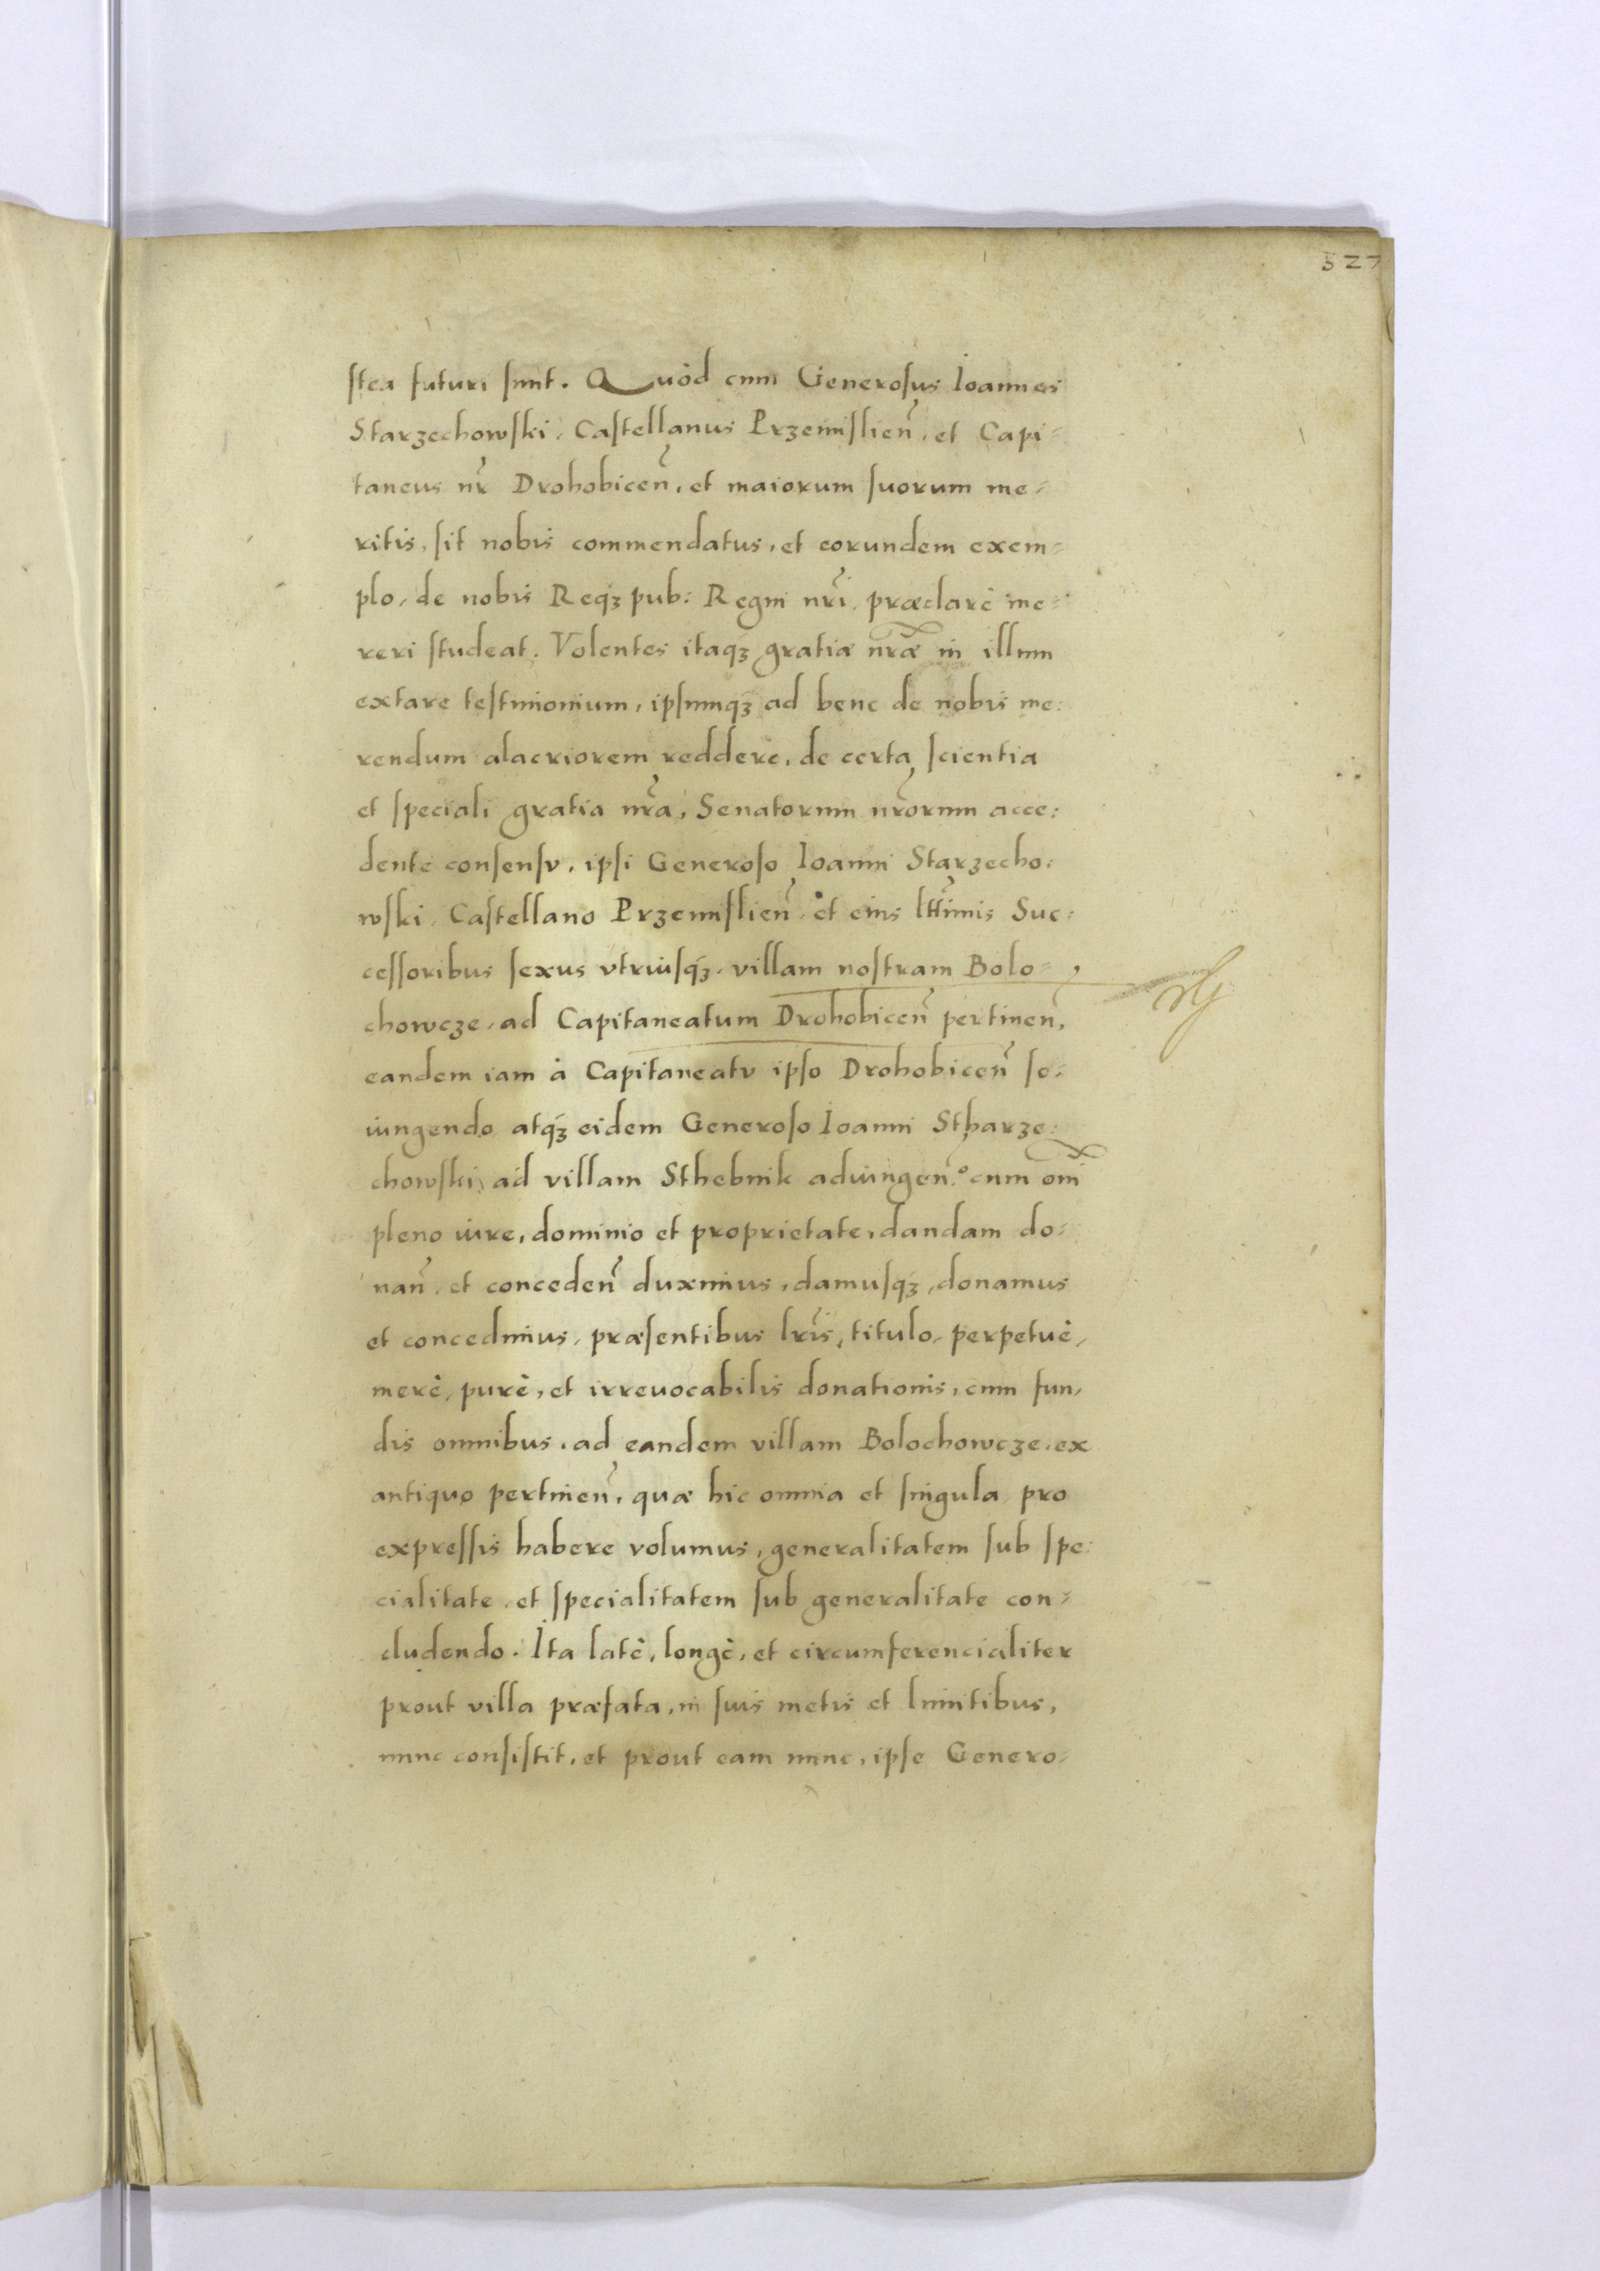 527
stea futuri sunt. Quòd cum Generosus Ioannes
Starzechowski, Castellanus Przemislien̄, et Capi-
taneus nr̄ Drohobicen̄, et maiorum suorum me-
ritis, sit nobis commendatus, et eorundem exem-
plo, de nobis Reqꝫ pub: Regni nr̄i, præclarè me-
reri studeat. Volentes itaqꝫ gratiæ nr̄æ in illum
extare testimonium, ipsumqꝫ ad bene de nobis me:
rendum alacriorem reddere, de certa scientia
et speciali gratia nr̄a, Senatorum nr̄orum acce:
dente consensv, ipsi Generoso Ioanni Starzecho:
wski, Castellano Przemislien̄, et eius ltt̄imis Suc:
cessoribus sexus vtriusqꝫ, villam nostram Bolo-
chowcze, ad Capitaneatum Drohobicen̄ pertinen̄,
eandem iam à Capitaneatv ipso Drohobicen̄ se-
iungendo atqꝫ eidem Generoso Ioanni Stharze:
chowski, ad villam Sthebnik adiungen̄: cum om̄i
pleno iure, dominio et proprietate, dandam do-
nan̄, et conceden̄ duximus, damusqꝫ, donamus
et concedimus, præsentibus lr̄is, titulo, perpetuè,
merè, purè, et irreuocabilis donationis, cum fun-
dis omnibus, ad eandem villam Bolochowcze, ex
antiquo pertinen̄, quæ hic omnia et singula pro
expressis habere volumus, generalitatem sub spe:
cialitate, et specialitatem sub generalitate con-
cludendo. Ita latè, longè, et circumferencialiter
prout villa præfata, in suis metis et limitibus,
nunc consistit, et prout eam nunc, ipse Genero-